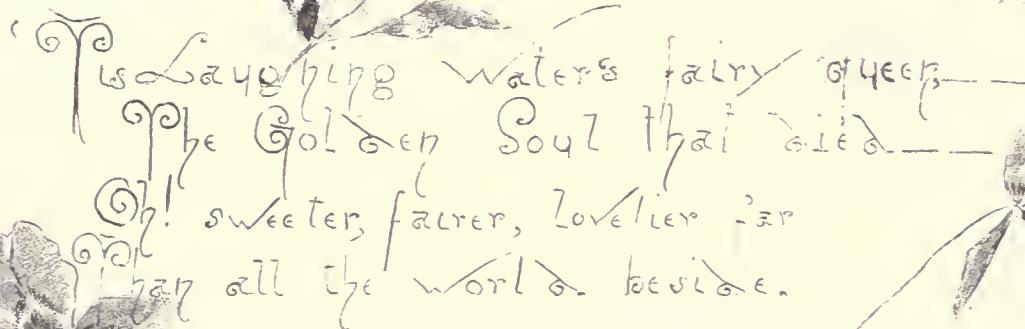 'Tis Laughing Waters fairy queen,——
The Golden Soul that died——
Oh! sweeter, fairer, lovelier far
Than all the world. beside.